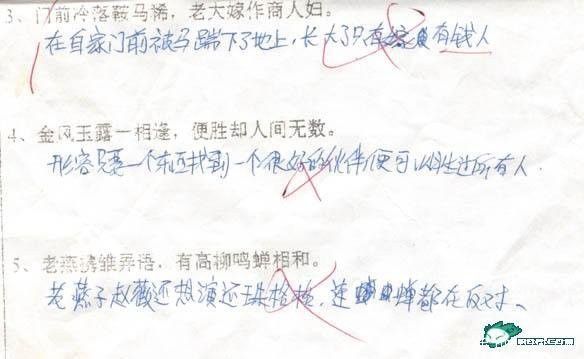 3、门前冷落鞍马稀，老大嫁作商人妇。
在自家门前被马踹下了地上，长大了只有 有钱人
4、金风玉露一相逢，便胜却人间无数。
形容只要一个东西找到一个很好的伙伴便可以胜过所有人.
5、老燕携雏弄语，有高柳鸣蝉相和。
老燕子赵薇还想演还珠格格，连 蝉都在反对、